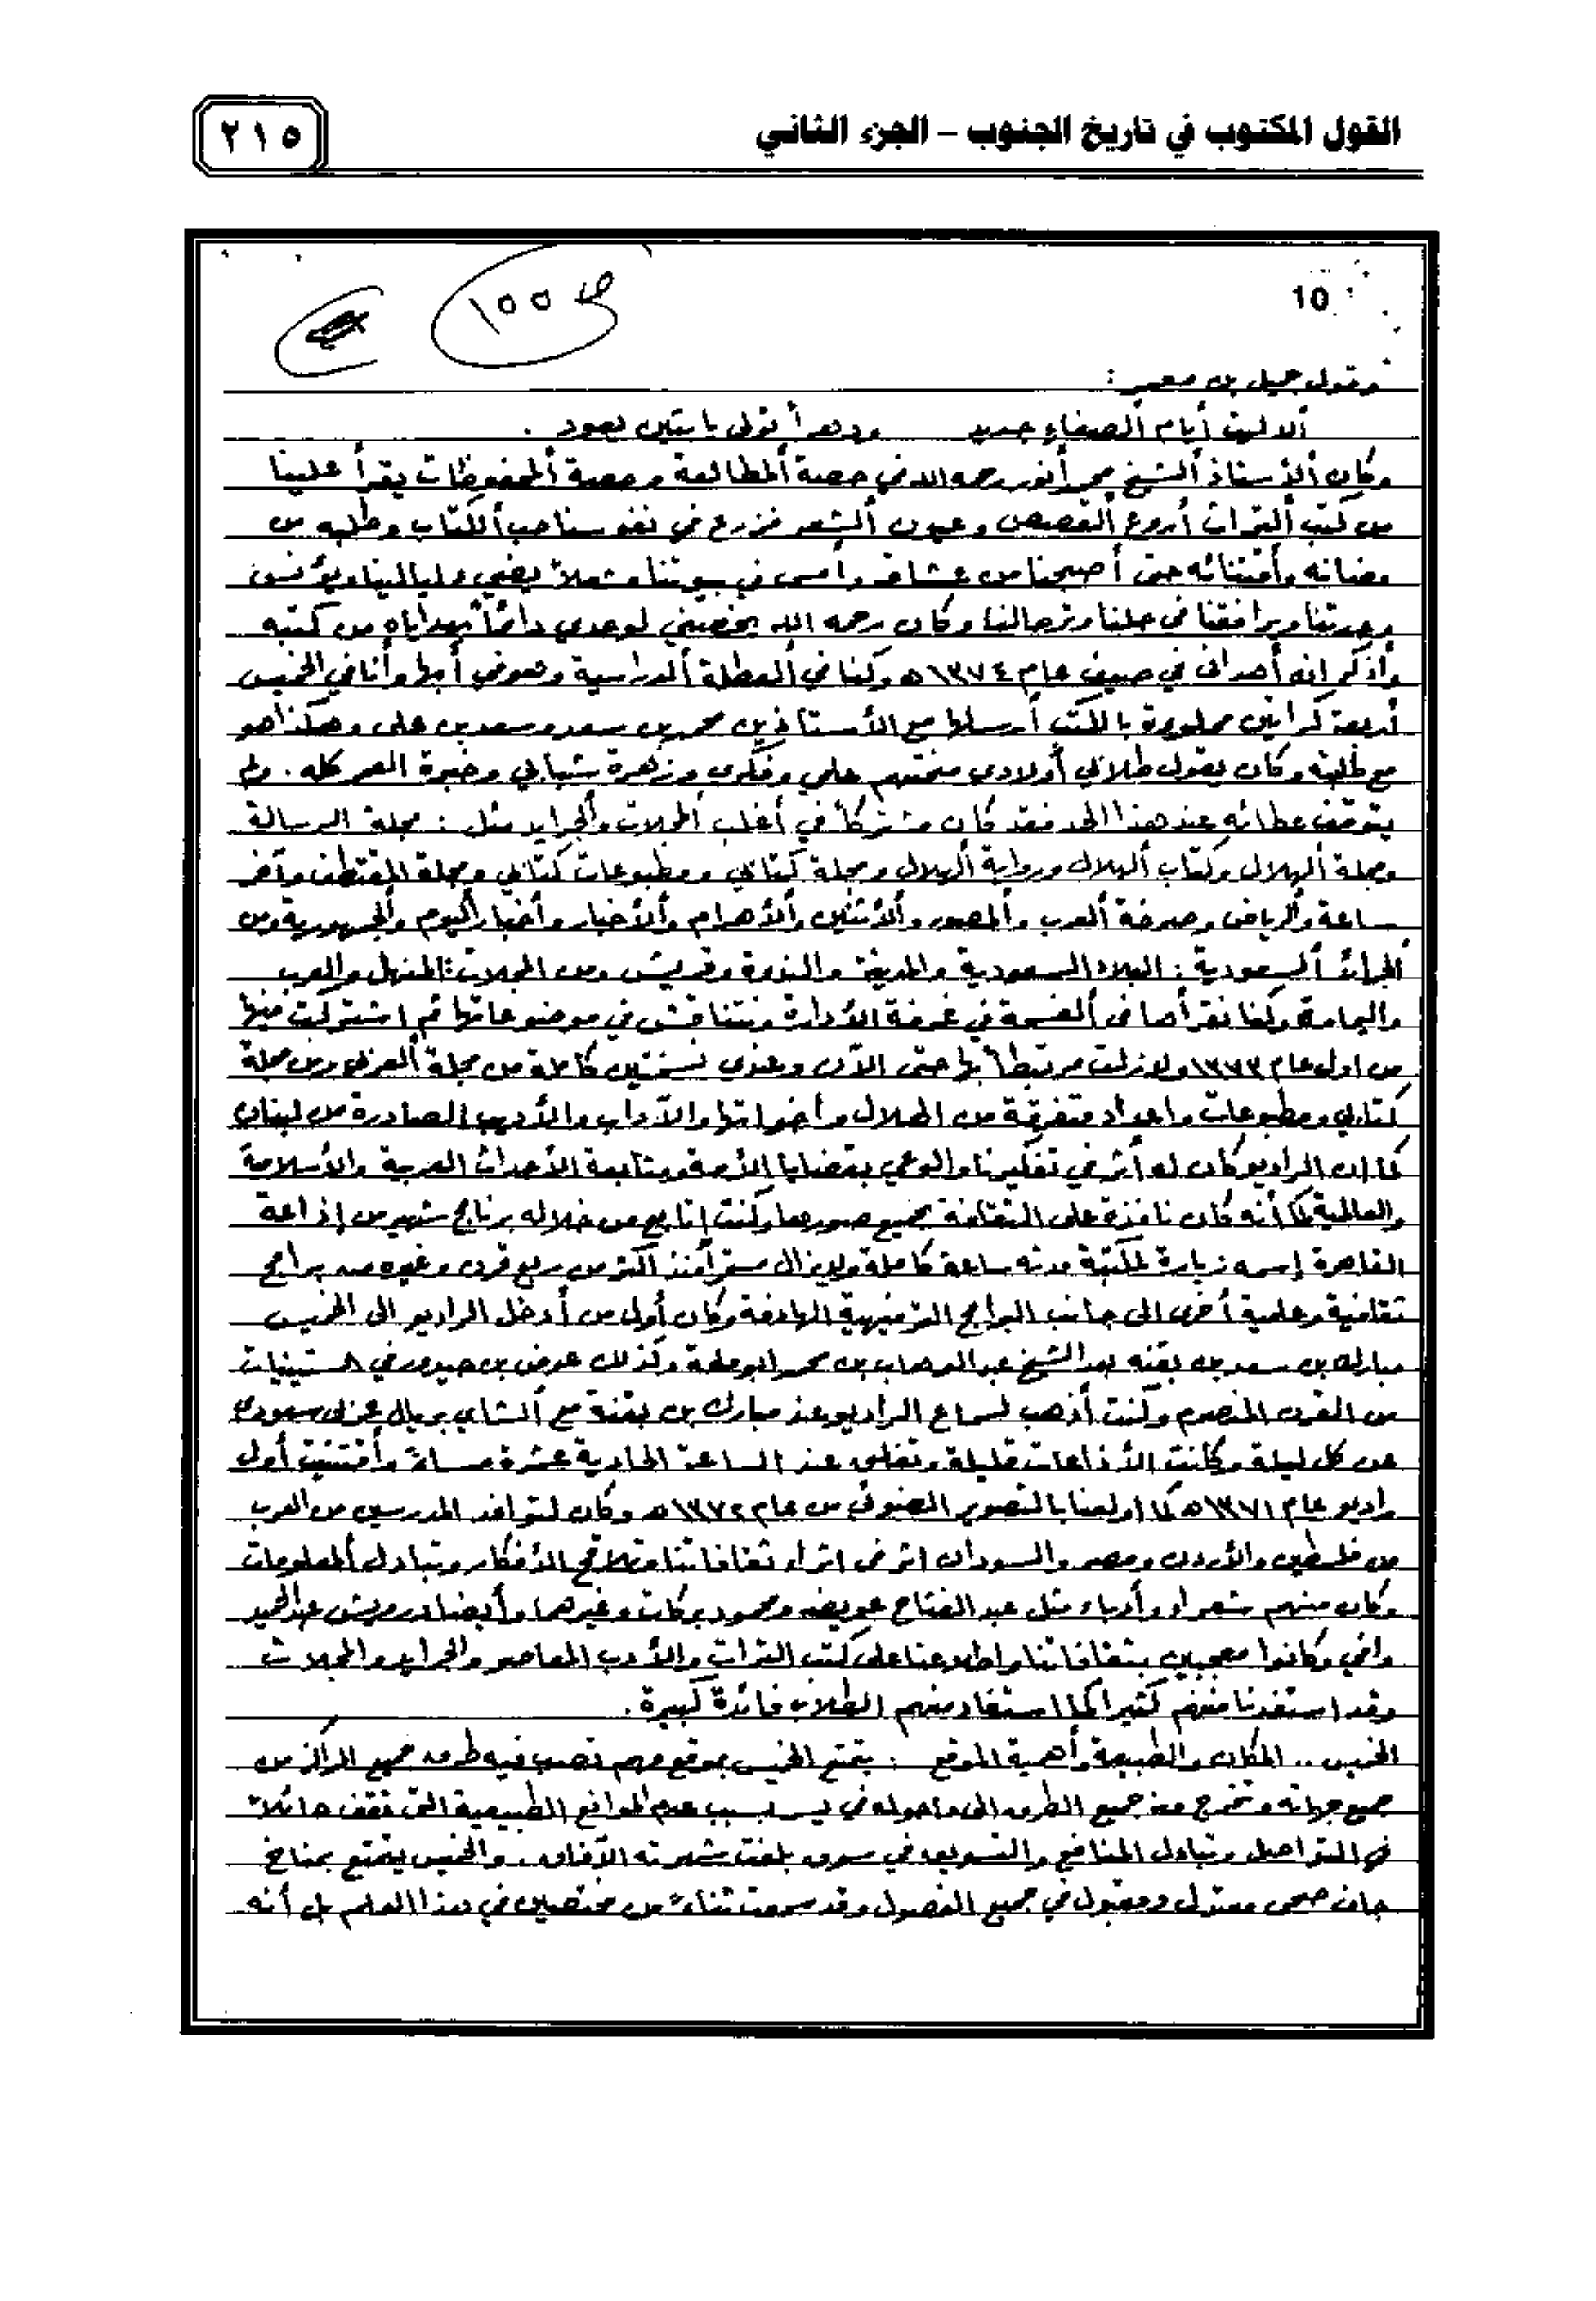 القول المكتوب في تاريخ الجنوب – الجزء الثاني
٢١٥
10
ص ١٥٥
وقول جميل بن معمر :
ألا ليت أيام الصفاء جديد ودهراً تولى يا بثين يعود .
وكان الأستاذ الشيخ محمد أنور رحمه الله في حصة المطالعة وحصة المحفوظات يقرأ علينا
من كتب التراث أروع القصص وعيون الشعر فزرع في نفوسنا حب الكتاب وطلبه من
مضانه وأقتنائه حتى أصبحنا من عشاقه وأمسى في بيوتنا مشعلاً يضيء ليالينا ويؤنس
وحدتنا ويرافقنا في حلنا وترحالنا وكان رحمه الله يخصني لوحدي دائماً بهداياه من كتبه
وأذكر انه أهداني في صيف عام ١٣٧٤ه وكنا في العطلة الدراسية وهو في أبها وأنا في الخميس
أربعة كراتين مملوءة بالكتب أرسلها مع الأستاذين محمد بن سعد وسعد بن علي وهكذا هو
مع طلبته وكان يقول طلابي أولادي منحتهم علمي وفكري وزهرة شبابي وخبرة العمر كله . ولم
يتوقف عطائه عند هذا الحد فقد كان مشتركاً في أغلب المجلات والجرايد مثل : مجلة الرسالة
ومجلة الهلال وكتاب الهلال ورواية الهلال ومجلة كتابي ومطبوعات كتابي ومجلة المقتطف وآخر
ساعة والرياض وصرخة العرب والمصور والأثنين والأهرام والأخبار وأخبار اليوم والجمهورية ومن
الجرائد السعودية : البلاد السعودية والمدينة والندوة وقريش ومن المجلات : المنهل والعرب
واليمامة وكنا نقرأها في الفسحة في غرفة الأدارة ونتناقش في موضوعاتها ثم اشتركت فيها
من اول عام ١٣٧٣ ولا زلت مرتبطاً بها حتى الآن وعندي نسختين كاملة من مجلة العربي ومن مجلة
كتابي ومطبوعات واعداد متفرقة من الهلال وأخواتها والآداب والأديب الصادرة من لبنان
كما ان الراديو كان له أثر في تفكيرنا والوعي بقضايا الأمة ومتابعة الأحداث العربية والأسلامية
والعالمية كما أنه كان نافذة على الثقافة بجميع صورها وكنت اتابع من خلاله برنامج شهير من إذاعة
القاهرة إسمه زيارة لمكتبة مدته ساعة كاملة ولا يزال مستمراً منذ اكثر من ربع قرن وغيره من برامج
ثقافية وعلمية أخرى الى جانب البرامج الترفيهية الهادفة وكان أول من أدخل الراديو الى الخميس
مبارك بن سعد بن بقنه بعد الشيخ عبد الوهاب بن محمد ابو ملحة وكذلك عوض بن حيدر في الستينيات
من القرن المنصرم وكنت أذهب لسماع الراديو عند مبارك بن بقنة مع الشاي بريال عربي سعودي
عن كل ليلة وكانت الأذاعات قليلة وتغلق عند الساعة الحادية عشرة مساءً وأقتنيت أول
راديو عام ١٣٧١ه كما اولعنا بالتصوير الضوئي من عام ١٣٧٢ه وكان لتوافد المدرسين من العرب
من فلسطين والأردن ومصر والسودان اثر في اثراء ثقافاتنا وتلاقح الأفكار وتبادل المعلومات
وكان منهم شعراء وأدباء مثل عبد الفتاح عويضه ومحمود بركات وغيرهما وأيضا درويش عبد الحميد
وافي وكانوا معجبين بثقافاتنا واطلاعنا على كتب التراث والأدب المعاصر والجرايد والمجلات
وقد استفدنا منهم كثيرا كما استفاد منهم الطلاب فائدة كبيرة .
الخميس .. المكان والطبيعة وأهمية الموقع : يتمتع الخميس بموقع مهم تصب فيه طرق جميع المراكز من
جميع جهاته وتخرج منه جميع الطرق الى ماحوله في يسر بسبب عدم الموانع الطبيعية التي تقف حائلاً
في التواصل وتبادل المنافع والتسويق في سوق بلغت شهرته الآفاق .. والخميس يتمتع بمناخ
جاف صحي معتدل ومقبول في جميع الفصول وقد سمعت ثناءً من مختصين في هذا العلم بل أنه